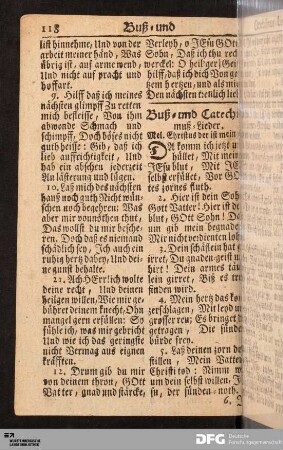 118 Buß⸗und
list hinnehme, Und von der
arbeit meiner händ, Was
übrig ist, auf arme wend,
Und nicht auf pracht und
hoffart.
9. Hilff daß ich meines
nächsten glimpff Zu retten
mich befleisse, Von ihm
abwende Schmach und
schimpff, Doch böses nicht
gutb heisse: Gib, daß ich
lieb auffrichtigkeit, Und
hab ein abschen jederzeit
An lästerung und lügen.
10. Laß mich des nächsten
hauß noch guth Nicht wün⸗
schen noch begehren: Was
aber mir vounöthen thut,
Das wollst du mir besche⸗
ren. Doch daß es niemand
schädlich sey, Ich auch ein
ruhig hertz dabey, Und dei⸗
ne gunst behalte.
11. Ach HErr! ich wolte
deine recht, Und deinen
heilgen willen, Wie mir ge⸗
bühret deinem knecht, Ohn
mangel gern erfüllen: So
fühle ich, was mir gebricht
Und wie ich das geringste
nicht Vermag aus eignen
kräfften.
12. Drum gib du mir
von deinem thron, GOtt
Vatter, gnad und stärcke,
Verleyh, o JEsu GOt
Sohn, Daß ich thu rec
wercke: O heilger Ge
hilff, daß ich dich Von ga
tzem hertzen, und als mi
Den nächsten treulich lieb
Buß⸗und Catech
muß⸗Lieder.
Mel. Christus der ist mein
DA komm ich jetzt
hüllet, Mit
JEsu blut, Mit
selbst erfüllet, Vor GO
tes zornes fluth.
2. Hier ist dein Soh
Gott Vatter! Hier ist de
blut, GOtt Sohn! Da
um gib mein begnad
Mir nicht verdienten loh
3. Dein schäflein hat
irret, Du gnaden⸗geist
hirt! Dein armes täu
lein girret, Biß es
finden wird.
4. Mein hertz das
zerschlagen, Mit leyd
grosser reu; Es bringet
getragen, Die sünden
bürde frey.
5. Laß deinen zorn
stillen, Mein Vatter
Christi tod: Nimm
um dein selbst willen,
su, der sünden⸗noth.
6.
DFG Deutsche
Forschungsgemeinschaft